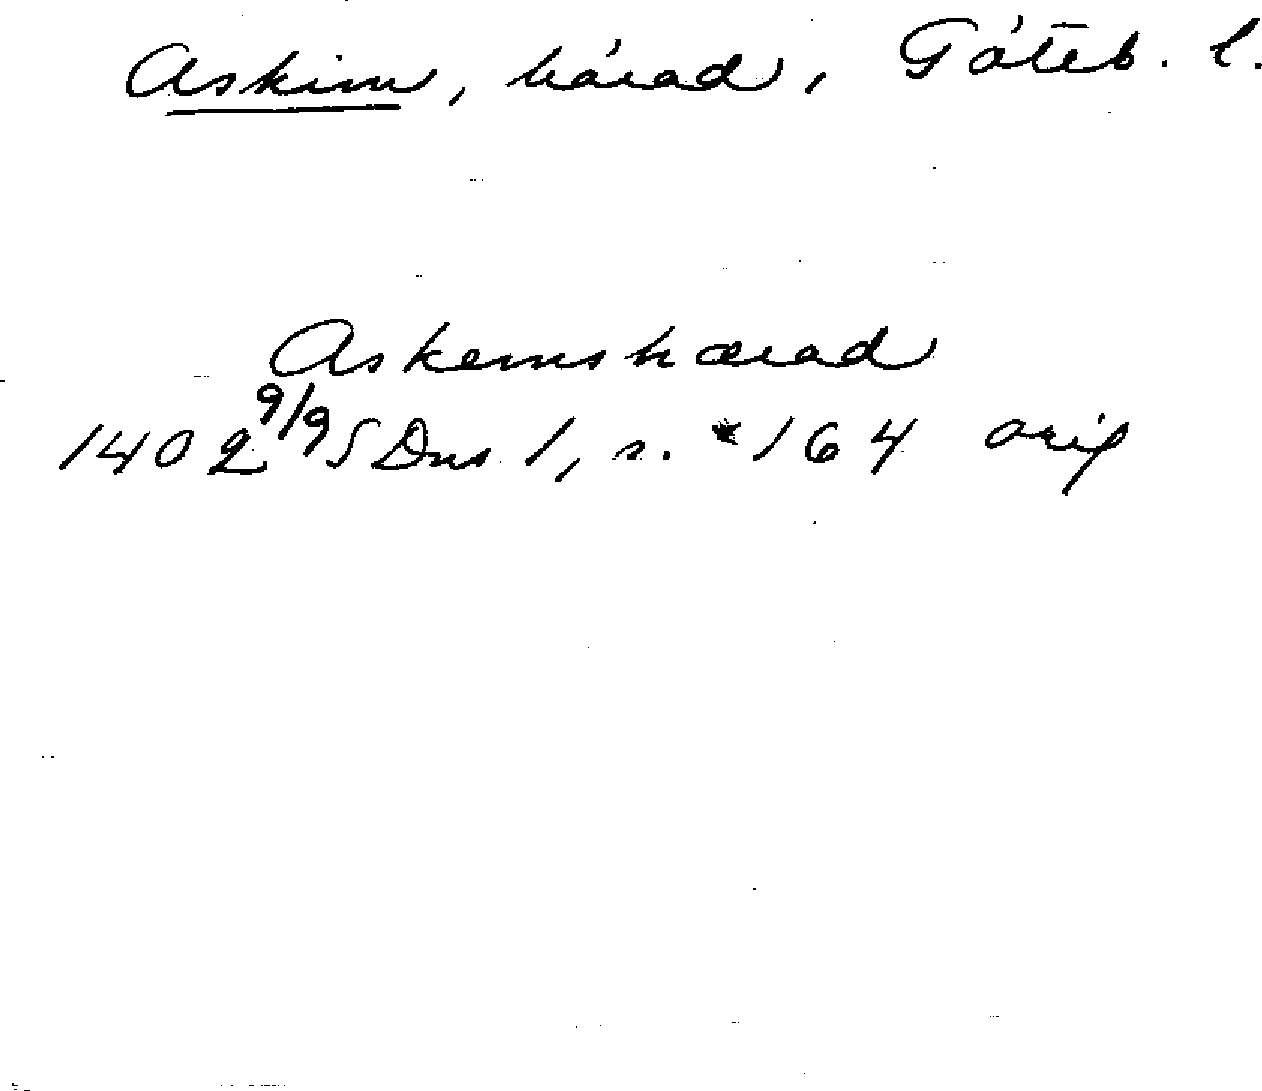 Askim, härad, Göteb. l.
Askemshærad
1402 9/9 SDns 1, s. *164 orig